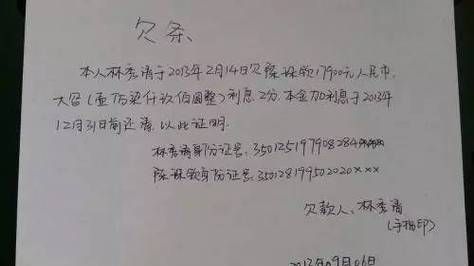 欠条
本人林秀清于2013年2月14日欠陈 17900元人民币,
大写(壹万柒仟玖佰圆整)利息2分.本金加利息于2013年
12月31日前还清.以此证明.
林秀清身份证号:35012519790828
陈 身份证号:350128199502020×××
欠款人:林秀清
(手指印)
2013年09月06日